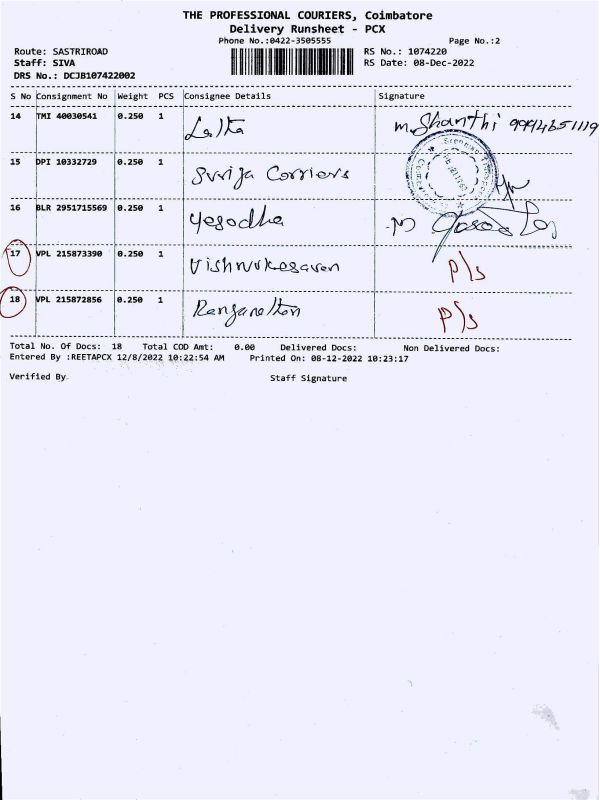 THE PROFESSIONAL COURIERS, Coimbatore
Delivery Runsheet - PCX
Phone No.:0422-3505555 Page No.:2
Route: SASTRIROAD RS No.: 1074220
Staff: SIVA RS Date: 08-Dec-2022
DRS No.: DCJB107422002
S No Consignment No Weight PCS Consignee Details Signature
14 TMI 40030541 0.250 1 Lalta M. Shanthi
15 DPI 10332729 0.250 1 Surija Corriers
16 BLR 2951715569 0.250 1 Yesodha
17 VPL 215873390 0.250 1 Vishnukesaven P/s
18 VPL 215872856 0.250 1 P/s
Total No. Of Docs: 18 Total COD Amt: 0.00 Delivered Docs: Non Delivered Docs:
Entered By :REETAPCX 12/8/2022 10:22:54 AM Printed On: 08-12-2022 10:23:17
Verified By Staff Signature